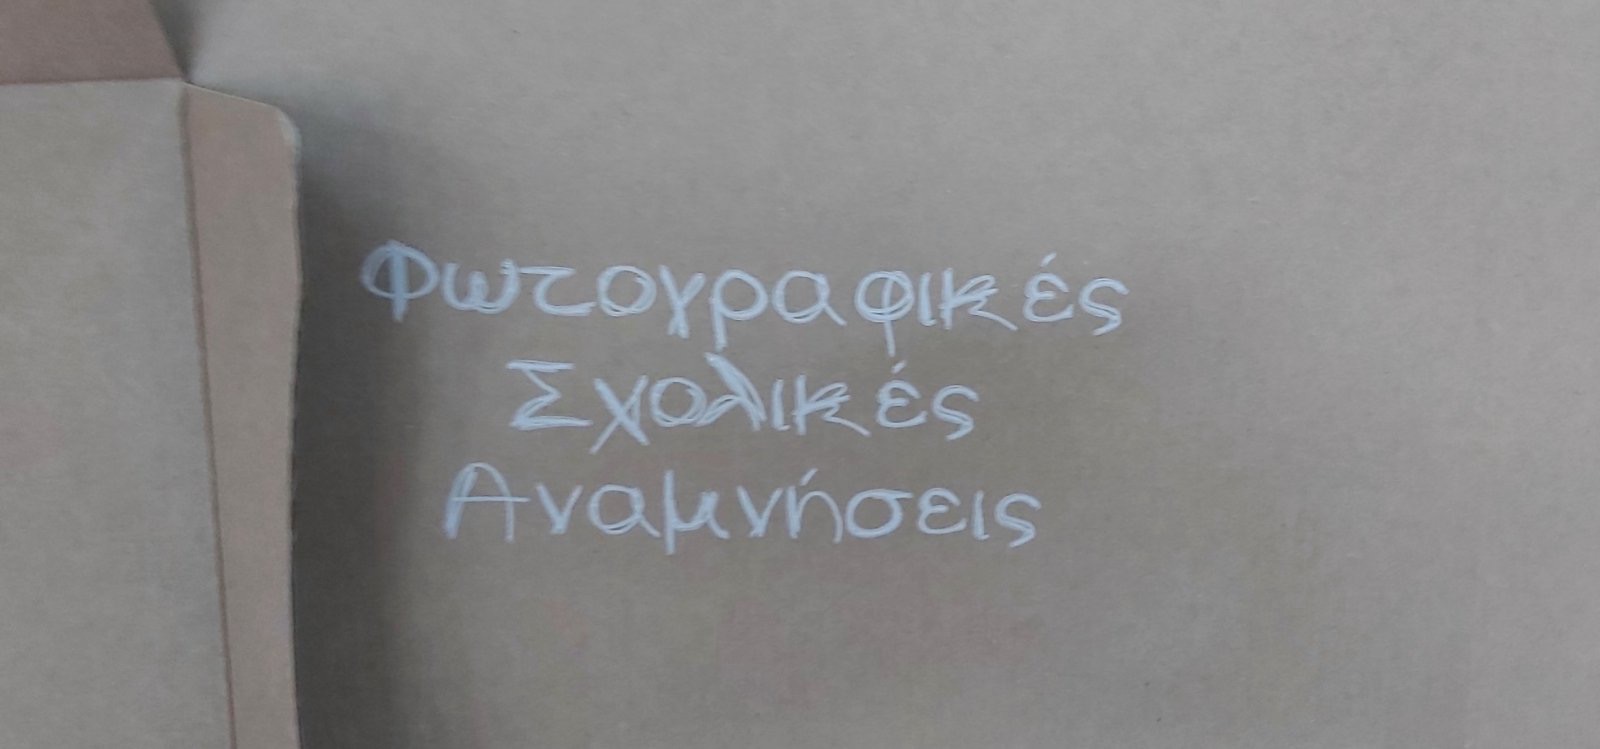 Φωτογραφικές
Σχολικές
Αναμνήσεις